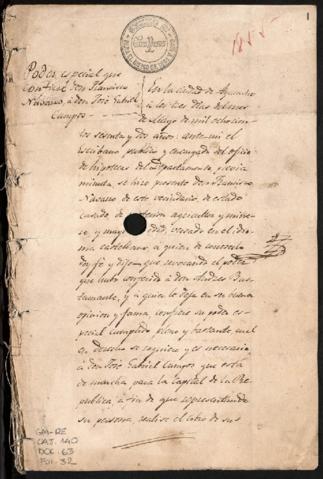 1
1855
Poder especial que
confiere don Francisco
Navarro, a don José Gabriel
Campos
En la ciudad de Ayacucho
a los tres dias del mes
de Mayo de mil ochocien
tos sesenta y dos años: ante mi el
escribano publico y encargado del oficio
de hipotecas del Departamento, previa
minuta, se hizo presente don Francisco
Navarro de este vecindario, de estado
casado, de agricultor y
y mayor edad, versado en el idio
ma castellano, a quien de conocerlo
doy fé y dijo que revocando el poder
que hubo conferido a don Andres Bus
tamante, y a quien lo deja en su buena
opinion y fama, confiere su poder es
pecial cumplido pleno y bastante, cual
de derecho se requiere y es necesario
a don José Gabriel Campos que está
de marcha para la Capital de la Re
publica a fin de que representando
su persona, realise el cobro de
GM-RE
CAJ. 140
DOC. 63
FOL. 32